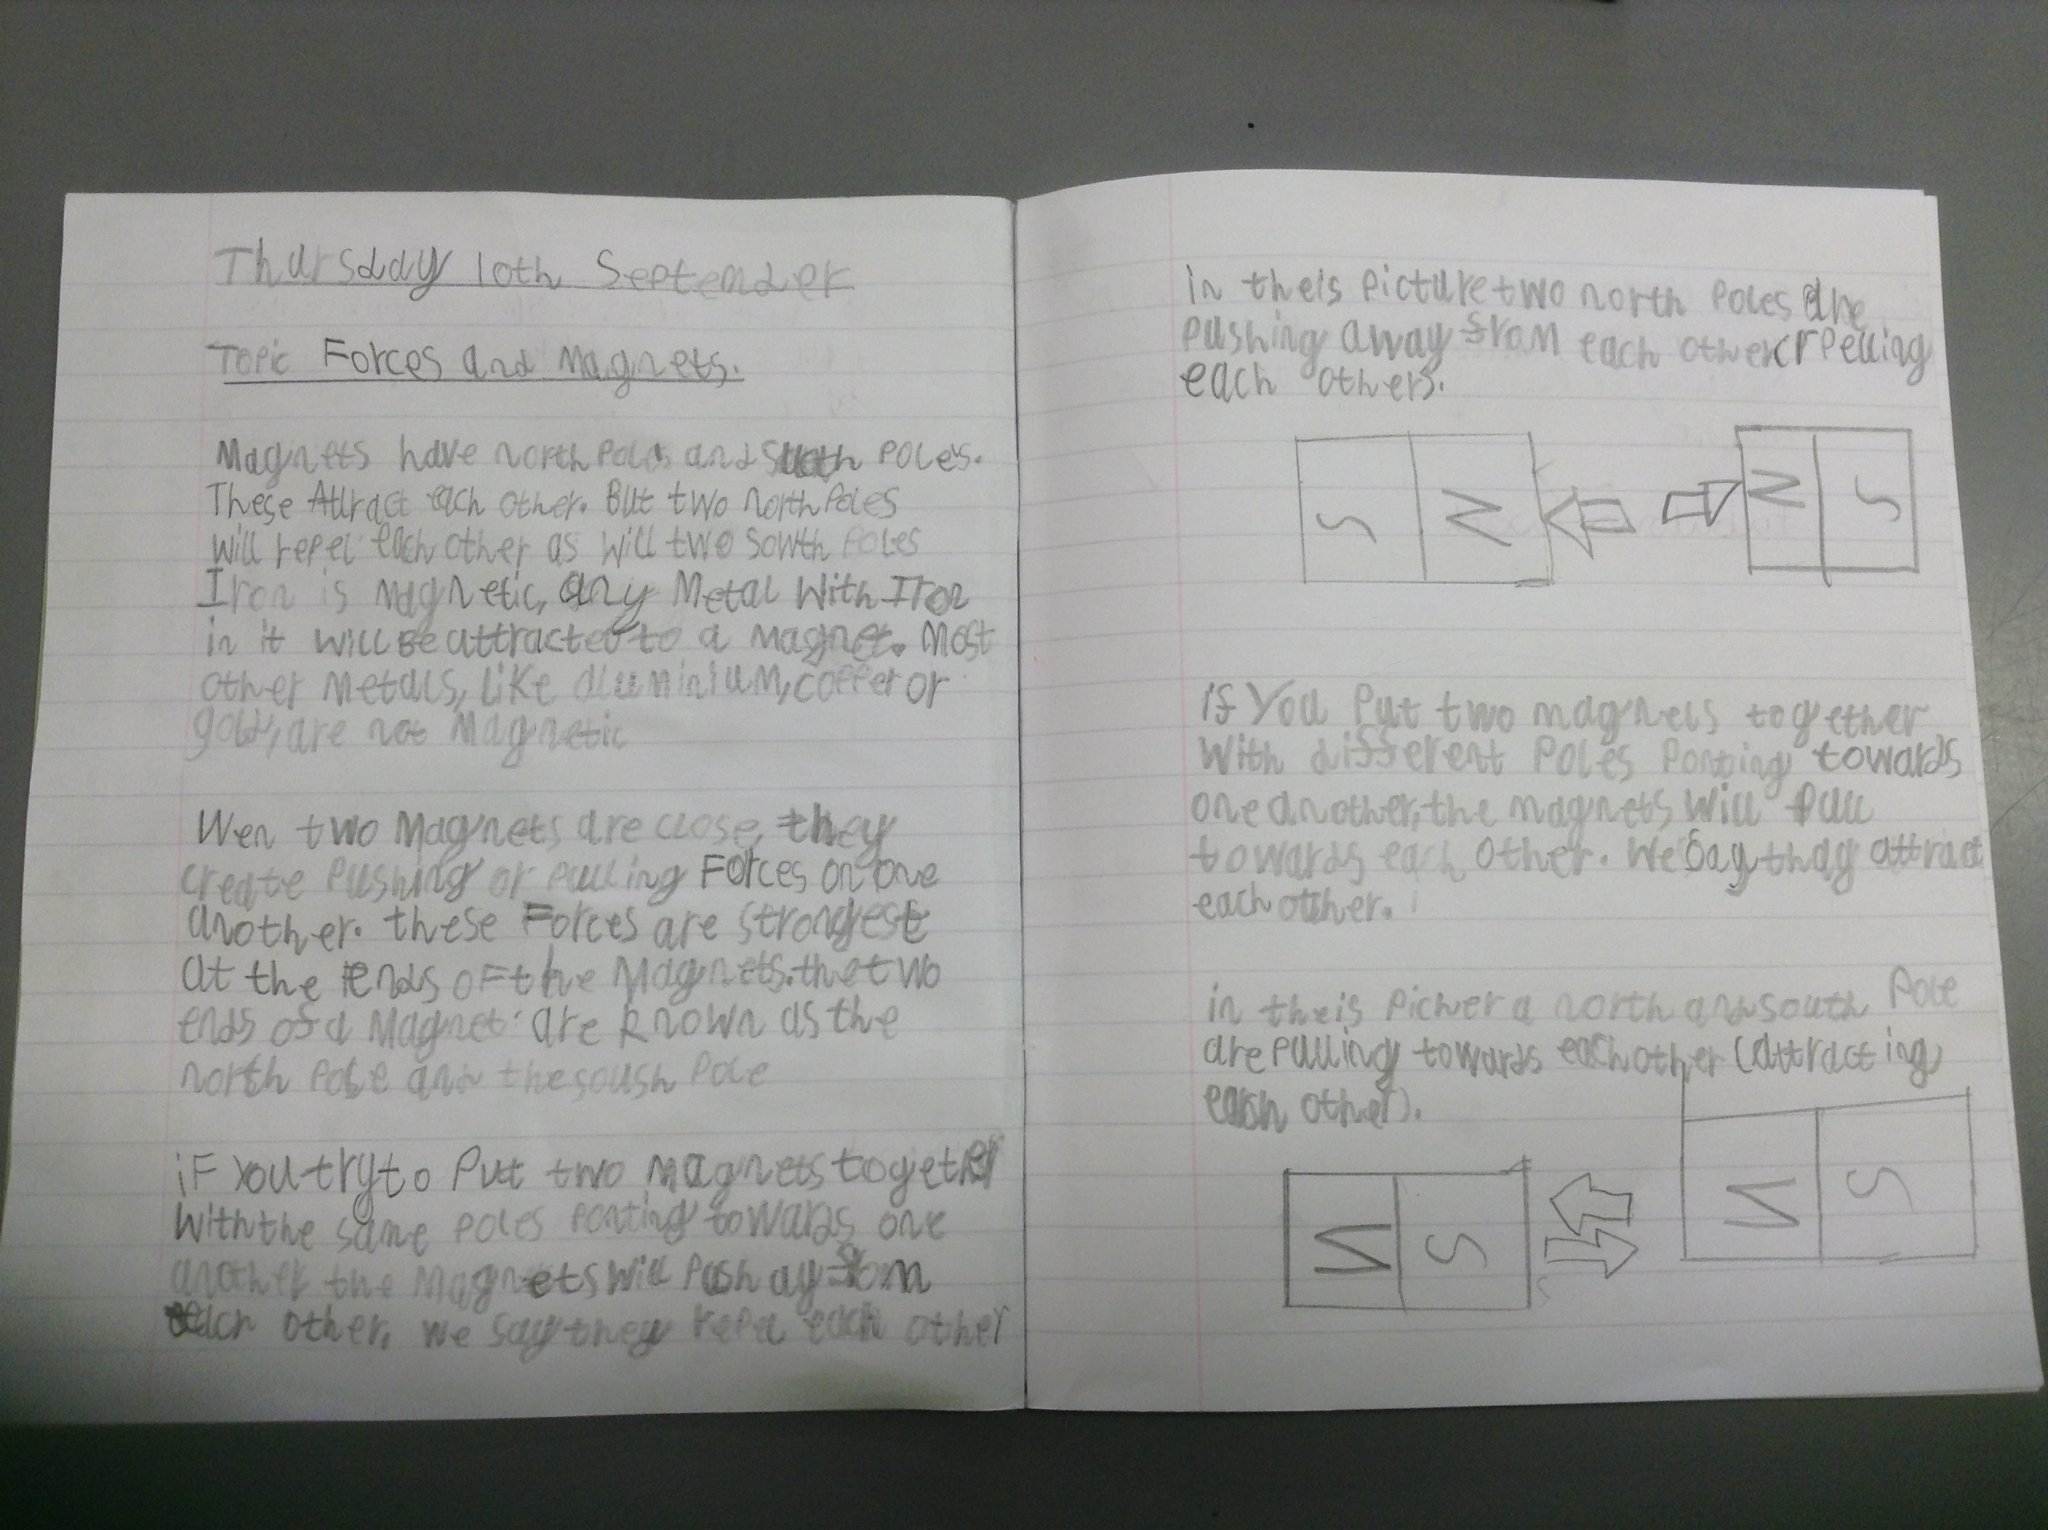 Thursday 10th September
Topic Forces and Magnets.
Magnets have north Poles and south Poles.
These Attract each other. But two north Poles
will repel each other as will two sowth Poles
Iron is magnetic, any Metal With Iron
in it will Be attracted to a magnet. Most
other metals, Like aluminium, copper or
gold, are not Magnetic
Wen two Magnets are close, they
create Pushing or Pulling Forces on one
another. these Forces are strongest
at the ends oF the Magnets. the two
ends of a Magnet are known as the
north Pole and the soush Pole
iF You try to Put two magnets together
With the same Poles Ponting towards one
another the Magnets will Push ay from
each other. we say they repel each other
in theis Picture two north Poles are
Pushing away from each other (rPelling
each others.
S N N S
if You Put two magnets together
With different Poles Ponting towards
one another, the magnets Will Pull
towards each other. We Say thay attract
each other.
in theis Picher a north and south Pole
are Pulling towards each other (attracting
each other).
N S N S